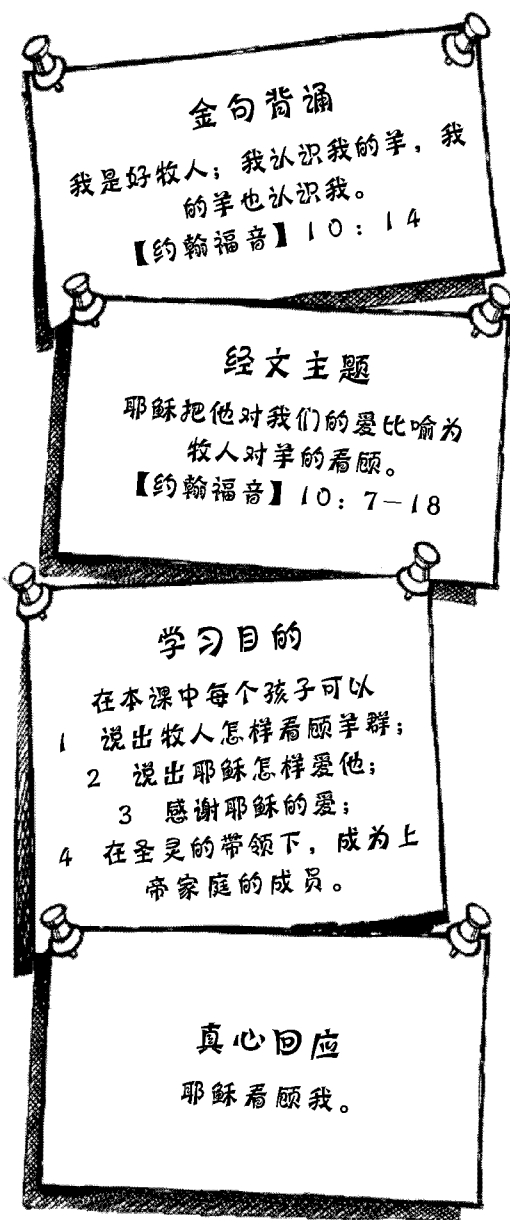 金句背诵
我是好牧人；我认识我的羊，我
的羊也认识我。
【约翰福音】10：14
经文主题
耶稣把他对我们的爱比喻为
牧人对羊的看顾。
【约翰福音】10：7－18
学习目的
在本课中每个孩子可以
1 说出牧人怎样看顾羊群；
2 说出耶稣怎样爱他；
3 感谢耶稣的爱；
4 在圣灵的带领下，成为上
帝家庭的成员。
真心回应
耶稣看顾我。